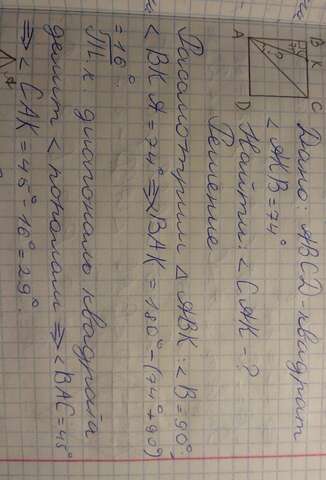 A
B K
C
D
Дано: ABCD - квадрат
< AKB = 74°
Найти: < CAK - ?
Решение
Рассмотрим Δ ABK: < B = 90°,
< BKA = 74° ⇒ BAK = 180° - (74° + 90)
= 16°.
Т.к диагональ квадрата
делит < пополам ⇒ < BAC = 45°
⇒ < CAK = 45° - 16° = 29°.